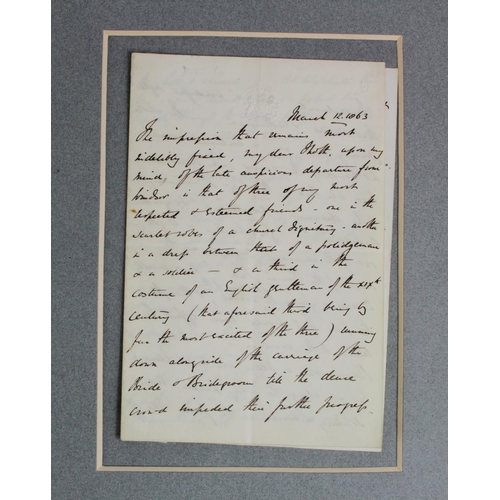 March 12. 1863
The impression that remains most
indelibly fixed, my dear Phott, upon my
mind, of the late auspicious departure from
Windsor is that of three of my most
respected & esteemed friends - one in the
scarlet robes of a church dignitary - another
in a dress between that of a policeman
& a soldier - & a third in the
costume of an English gentleman of the XIXth
century (that aforesaid third being by
far the most excited of the three) running
down alongside of the carriage of the
Bride & Bridegroom till the dense
crowd impeded their further progress.